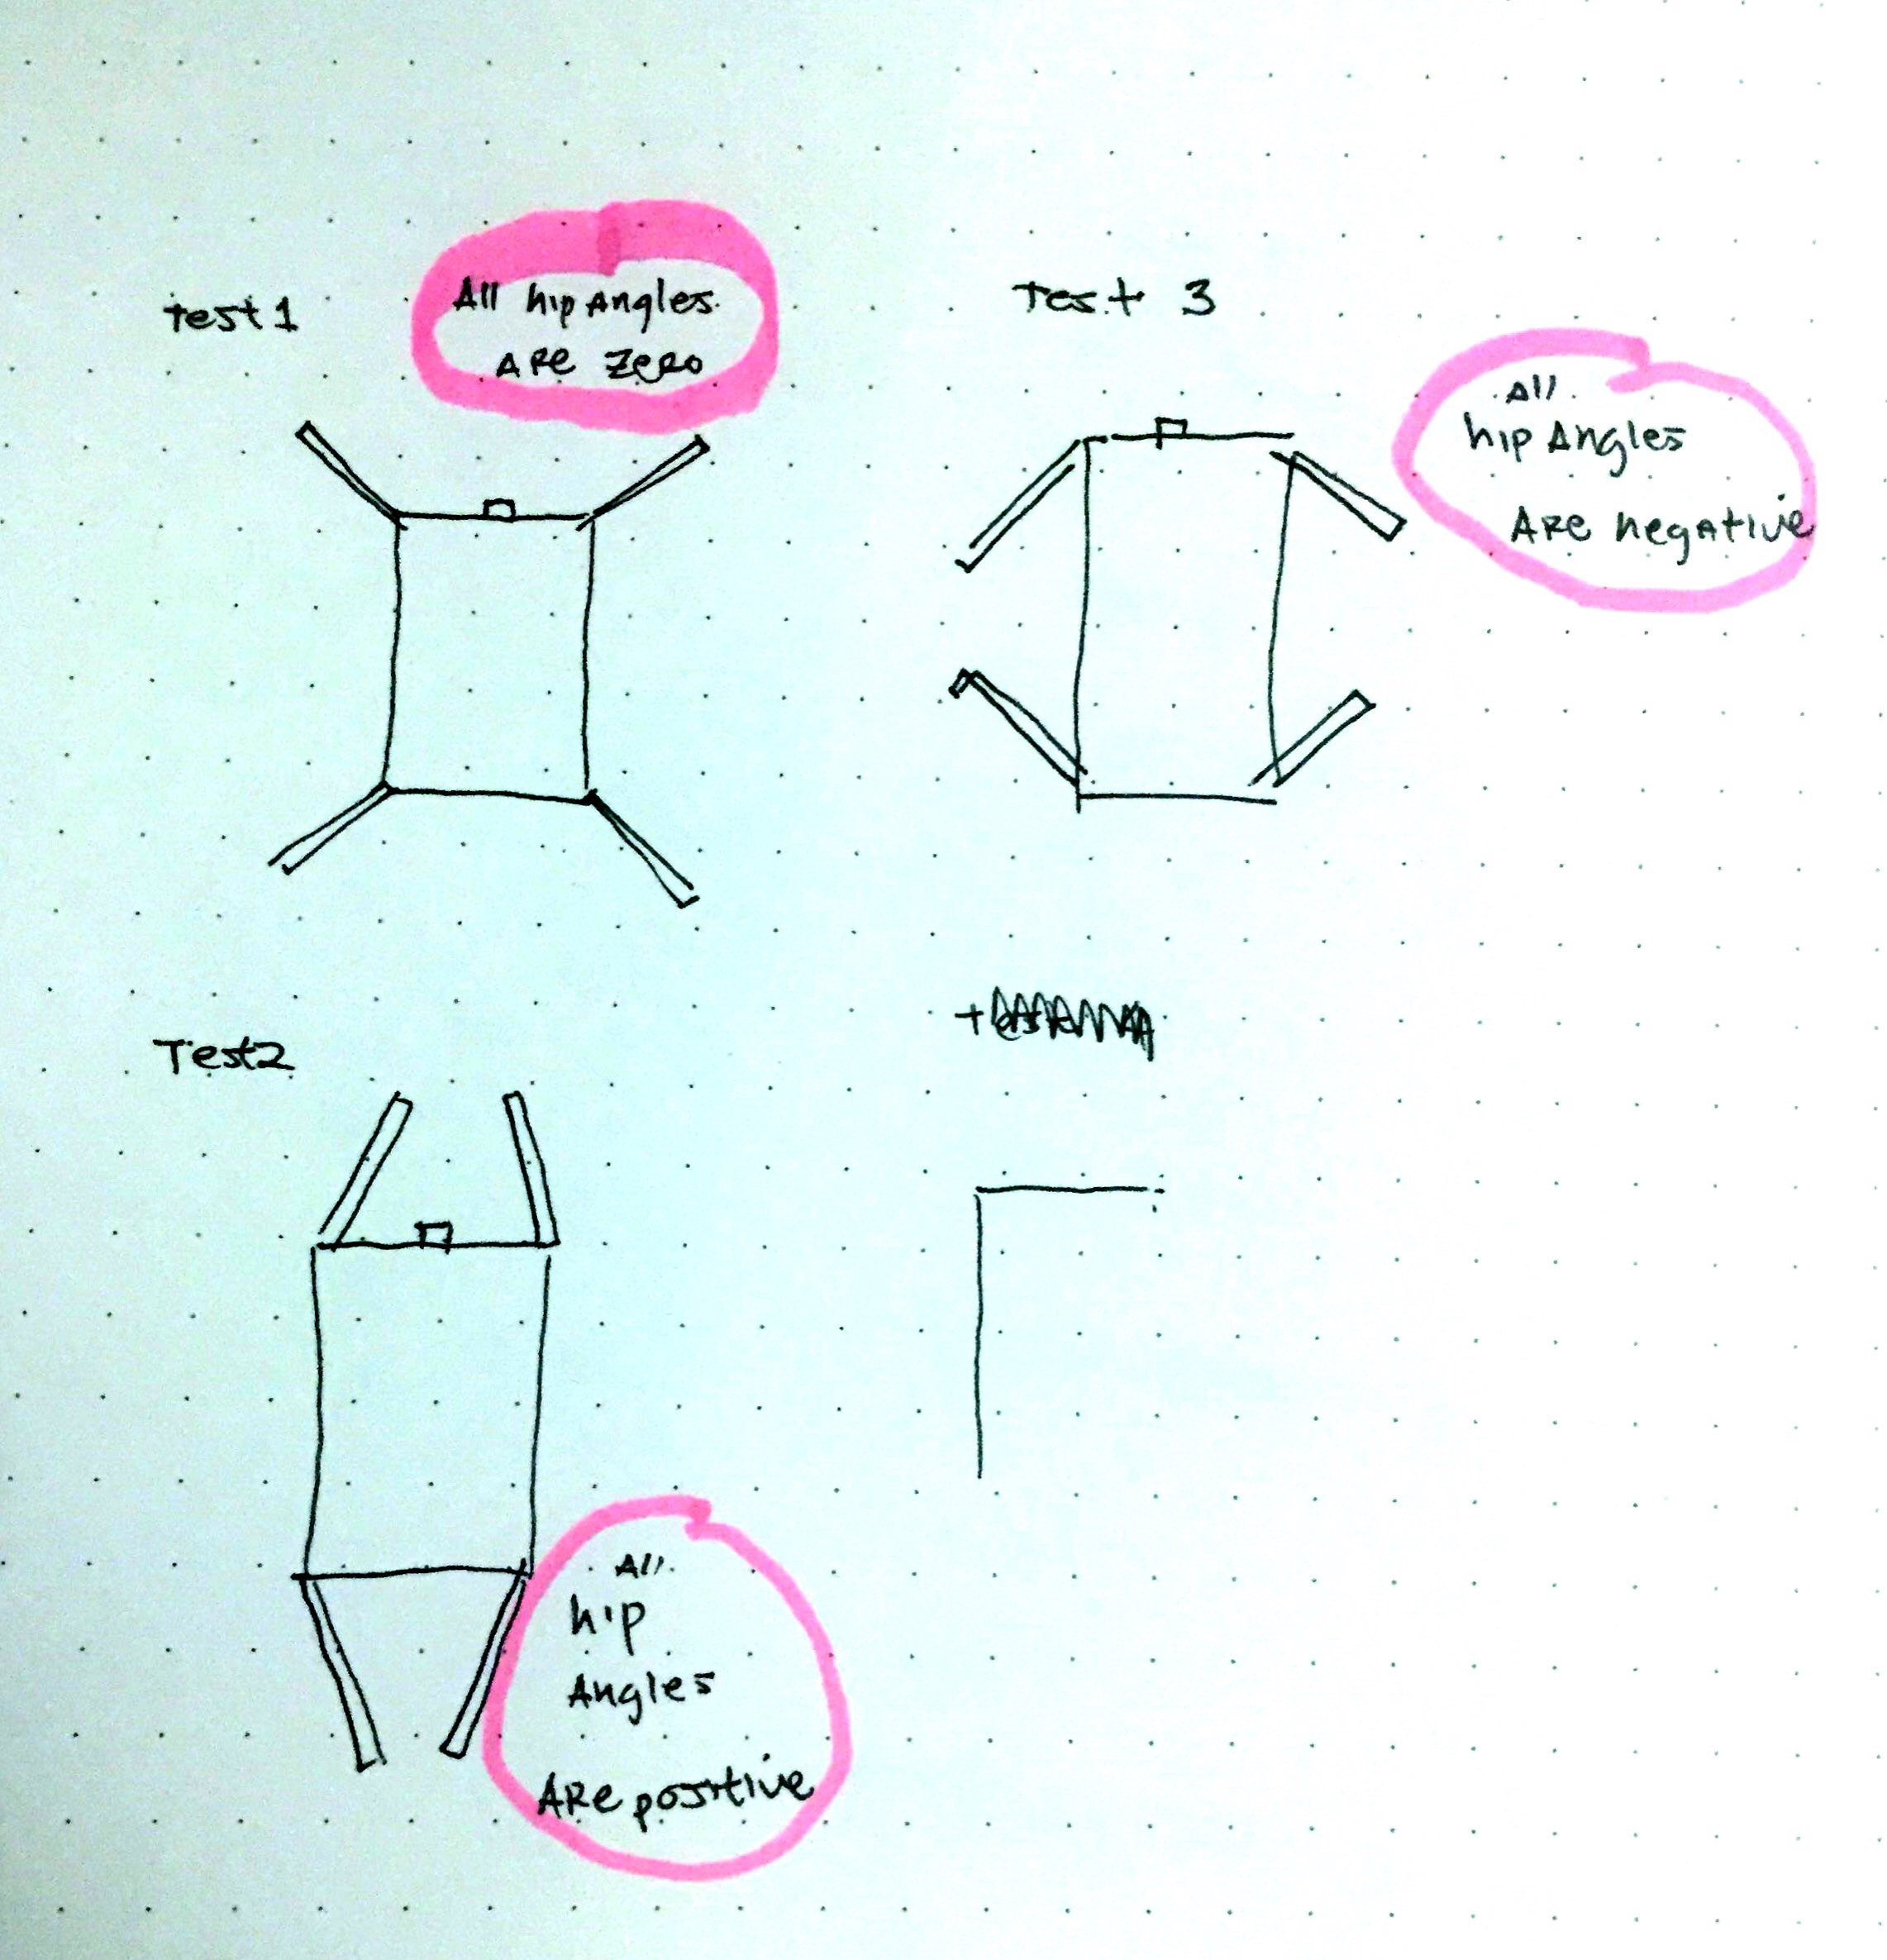 test 1
All hip Angles
ARe zero
Test 3
All
hip Angles
ARe negative
Test2
All
hip
Angles
ARe positive